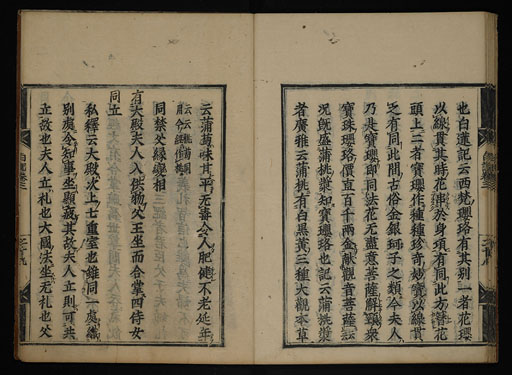 也白蓮記云西梵瓔珞有其別一者花瓔
以線貫其時花串於身項有同此方簪花
頭上二者寶瓔作種種珍奇妙寶以線貫
之有同此間古俗金銀珂子之類今夫人
乃是寶瓔即同法花无盡意菩薩解頸衆
寶珠瓔珞價直百千兩金獻觀音菩薩云
況既盛蒲桃漿知寶瓔珞也記云蒲桃漿
者廣雅云蒲桃有白黒黄三種大觀本草
云蒲萄味其平无毒令人肥健不老延年
同禁父縁變相
有大殿夫人入供物父王坐而合掌四侍女
同立
私釋云大殿次上七重室也雖同一處
別處令知事坐顯其故夫人立則可共
立故也夫人立礼也大國法坐无礼也父